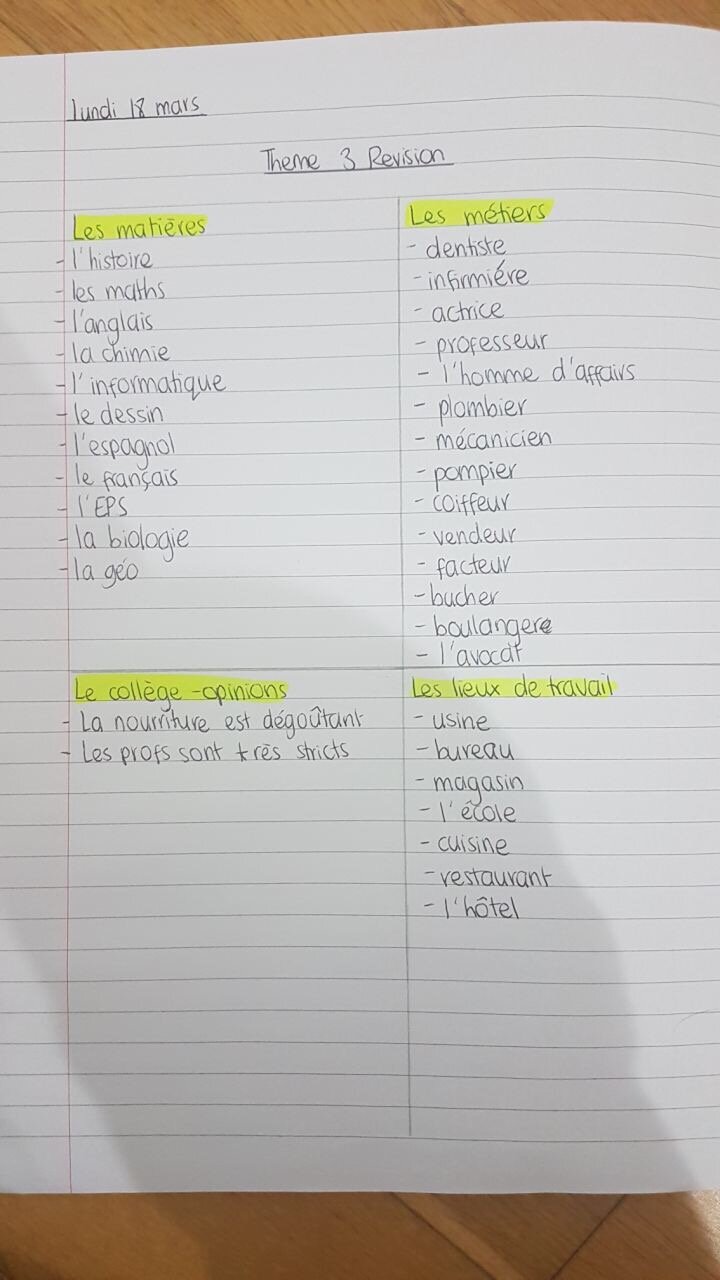 lundi 18 mars
Theme 3 Revision
Les matières
- l'histoire
- les maths
- l'anglais
- la chimie
- l'informatique
- le dessin
- l'espagnol
- le français
- l'EPS
- la biologie
- la géo
Les métiers
- dentiste
- infirmiére
- actrice
- professeur
- l'homme d'affairs
- plombier
- mécanicien
- pompier
- coiffeur
- vendeur
- facteur
- bucher
- boulangere
- l'avocat
Le collège - opinions
- La nourriture est dégoûtant
- Les profs sont très stricts
Les lieux de travail
- usine
- bureau
- magasin
- l'école
- cuisine
- restaurant
- l'hôtel